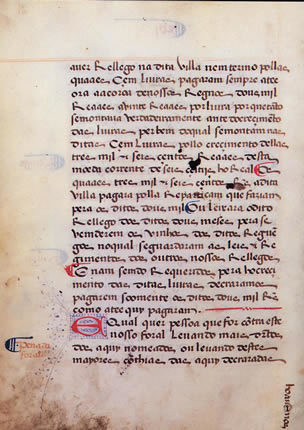 auer Rellego na dita villa nem termo pollas
quaaes Cem liuras pagaram sempre atee
ora aacerca de nossos Regnos dous mil
Reaaes
semontaua verdadeiramente
das liuras per bem do qual semontam nas
ditas Cem liuras pollo crecimento dellas
tres mil & seis centos Reaaes desta
moeda corrente de seis ho Real Os
quaaes tres mil & seis centos a dita
villa pagara polla Reparticam que faziam
pera os ditos dous mil Ou leuara o dito
Rellego dos ditos dous meses pera se
venderem os vinhos dos ditos Regue
gos no qual seguardaram as leis & Re
gimentos dos outros nossos Rellegos
E nam sendo Requerido pera ho creci
mento das ditas liuras decraramos
pagarem soomente os ditos dous mil Rs
como atee quy pagaram.
E qual quer pessoa que for contra este
nosso foral leuando mais direitos
dos aquy nomeados ou leuando destes
mayores conthias das aquy decraradas
Pena do
foral